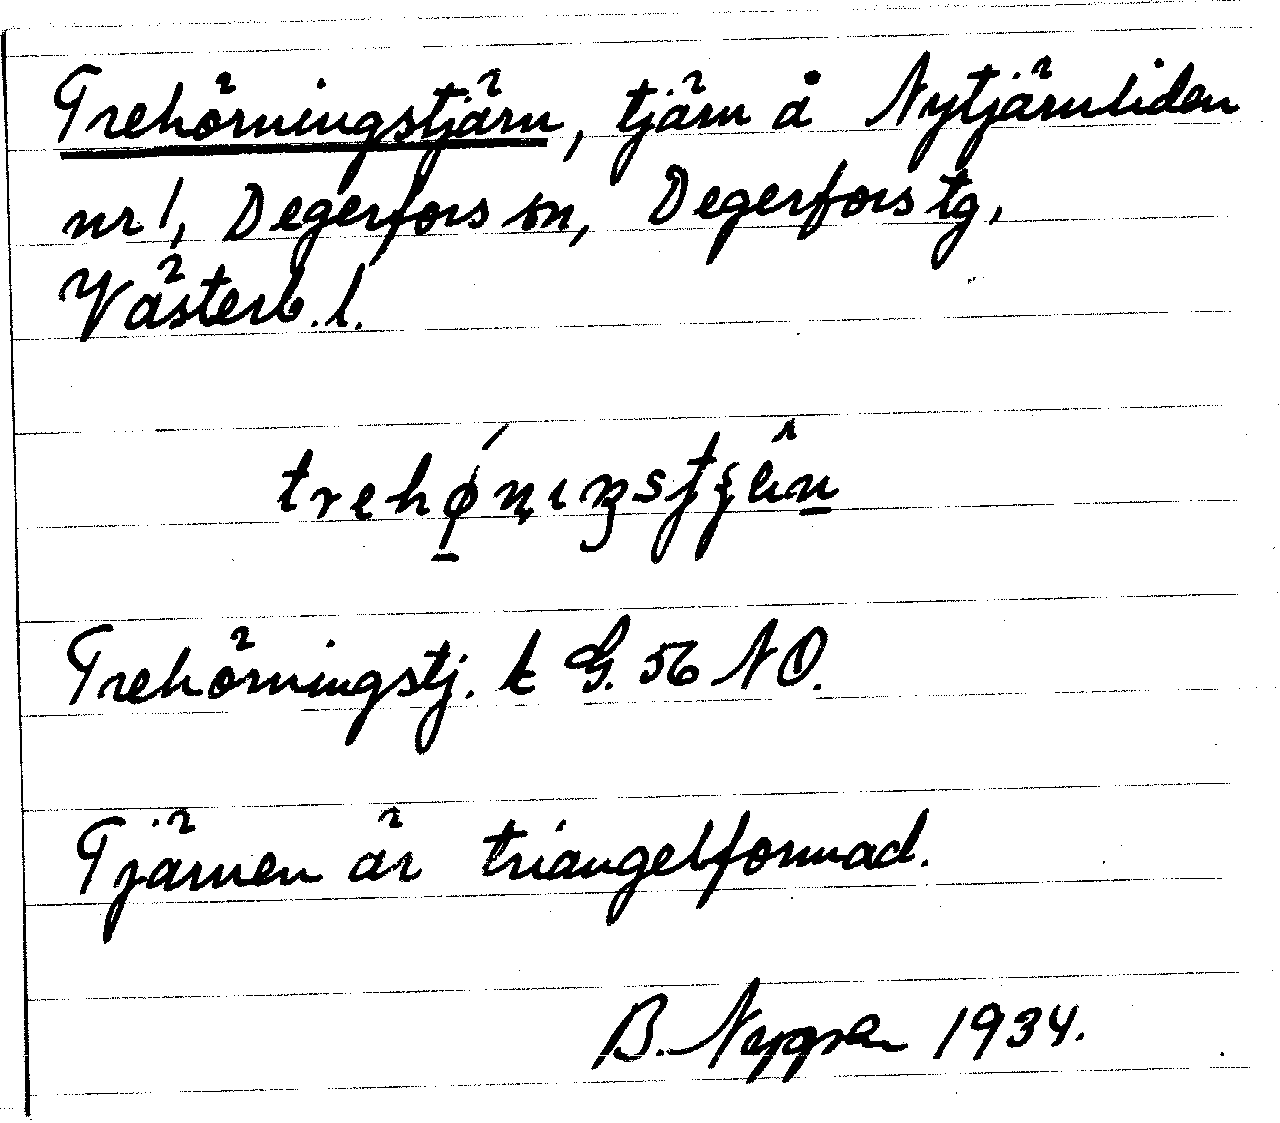 Trehörningstjärn, tjärn å Nytjärnliden
nr 1, Degerfors sn, Degerfors tg,
Västerb. l.
Trehörningstj. k G. 56 NO.
Tjärnen är triangelformad.
B. 1934.